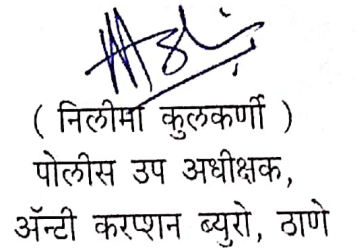 ( निलीमा कुलकर्णी )
पोलीस उप अधीक्षक,
ॲन्टी करप्शन ब्युरो, ठाणे